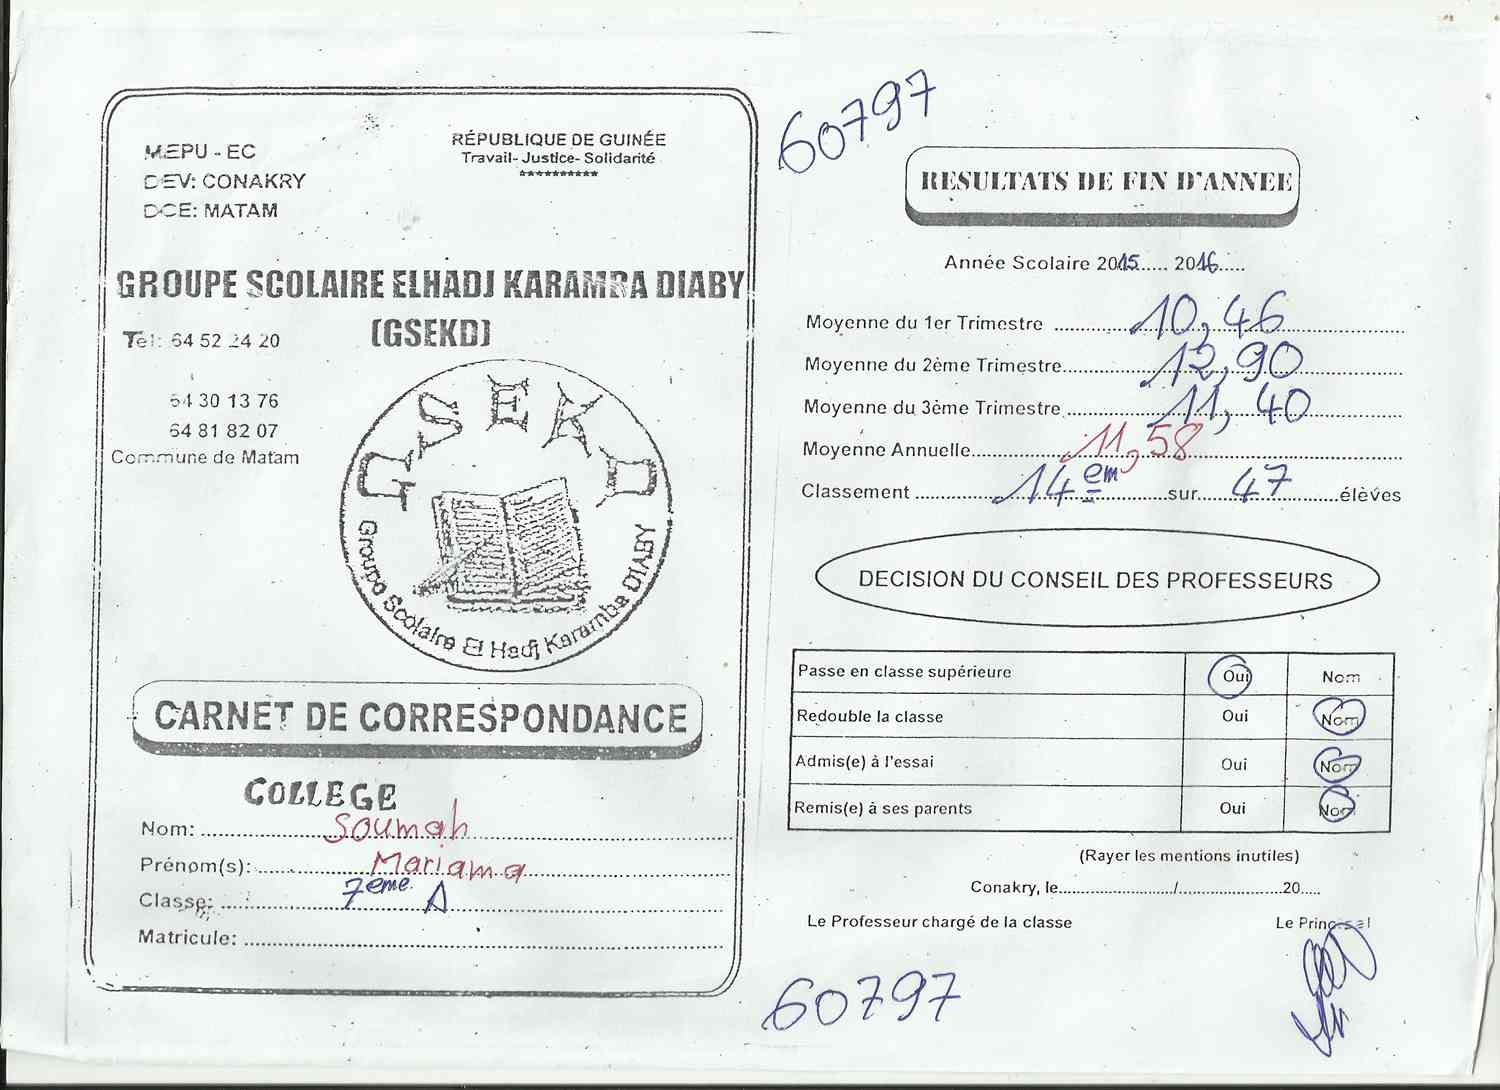 MEPU - EC
DEV: CONAKRY
DCE: MATAM
RÉPUBLIQUE DE GUINÉE
Travail- Justice- Solidarité
**********
GROUPE SCOLAIRE ELHADJ KARAMBA DIABY
(GSEKD)
Tél: 64 52 24 20
64 30 13 76
64 81 82 07
Commune de Matam
GSEKD
Groupe Scolaire El Hadj Karamba DIABY
CARNET DE CORRESPONDANCE
COLLEGE
Nom: Soumah
Prénom(s): Mariama
Classe: 7eme A
Matricule:
60797
RESULTATS DE FIN D'ANNEE
Année Scolaire 2015..... 2016.....
Moyenne du 1er Trimestre 10,46
Moyenne du 2ème Trimestre 12,90
Moyenne du 3ème Trimestre 11,40
Moyenne Annuelle 11,58
Classement 14em sur 47 élèves
DECISION DU CONSEIL DES PROFESSEURS
Passe en classe supérieure Oui Nom
Redouble la classe Oui Nom
Admis(e) à l'essai Oui Nom
Remis(e) à ses parents Oui Nom
(Rayer les mentions inutiles)
Conakry, le........................../......................20.....
Le Professeur chargé de la classe Le Principal
60797